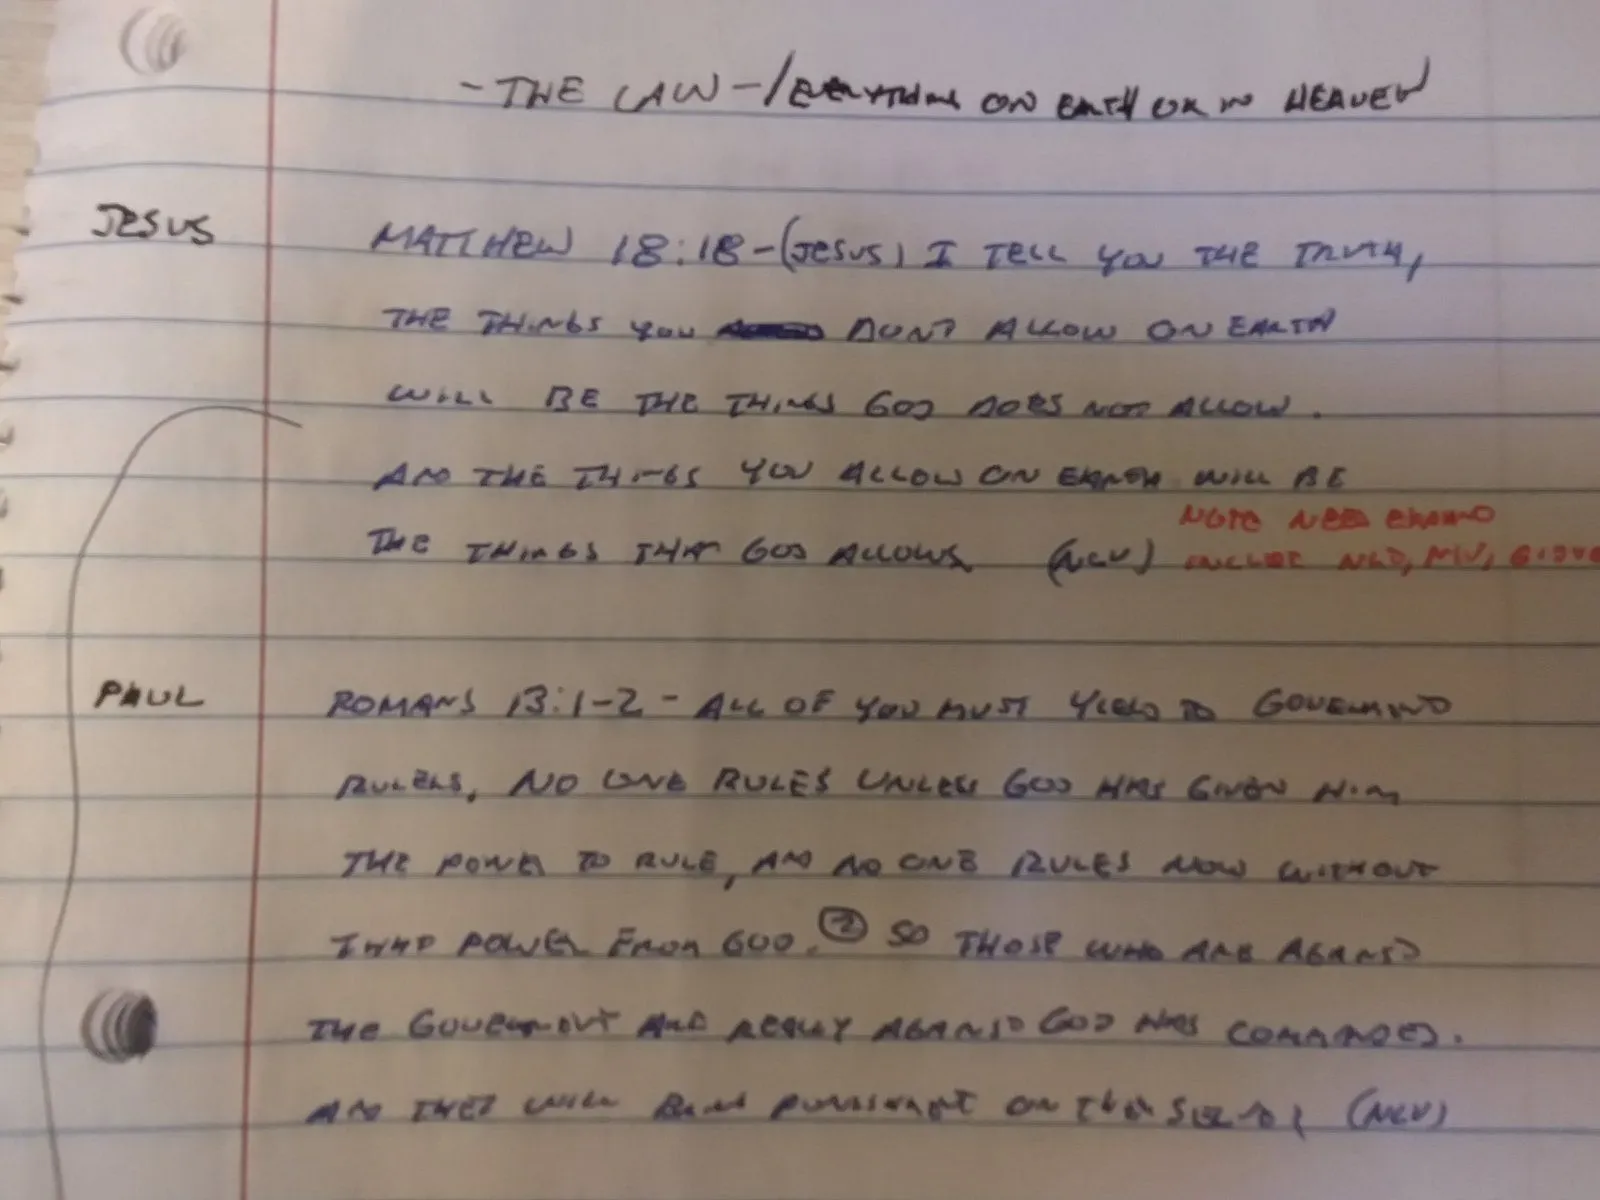 - THE LAW - / EVERYTHING ON EARTH OR IN HEAVEN
JESUS
MATTHEW 18:18 - (JESUS) I TELL YOU THE TRUTH,
THE THINGS YOU DONT ALLOW ON EARTH
WILL BE THE THINGS GOD DOES NOT ALLOW.
AND THE THINGS YOU ALLOW ON EARTH WILL BE
THE THINGS THAT GOD ALLOWS (NCV)
NOTE NEED EXPAND
NIV,
PAUL
ROMANS 13:1-2 - ALL OF YOU MUST YIELD TO
RULERS, NO ONE RULES UNLESS GOD HAS GIVEN HIM
THE POWER TO RULE, AND NO ONE RULES NOW WITHOUT
THAT POWER FROM GOD. 2 SO THOSE WHO ARE AGAINST
THE GOVERNMENT ARE REALLY AGAINST GOD HAS COMMANDED.
AND THEY WILL PUNISHMENT ON (NCV)